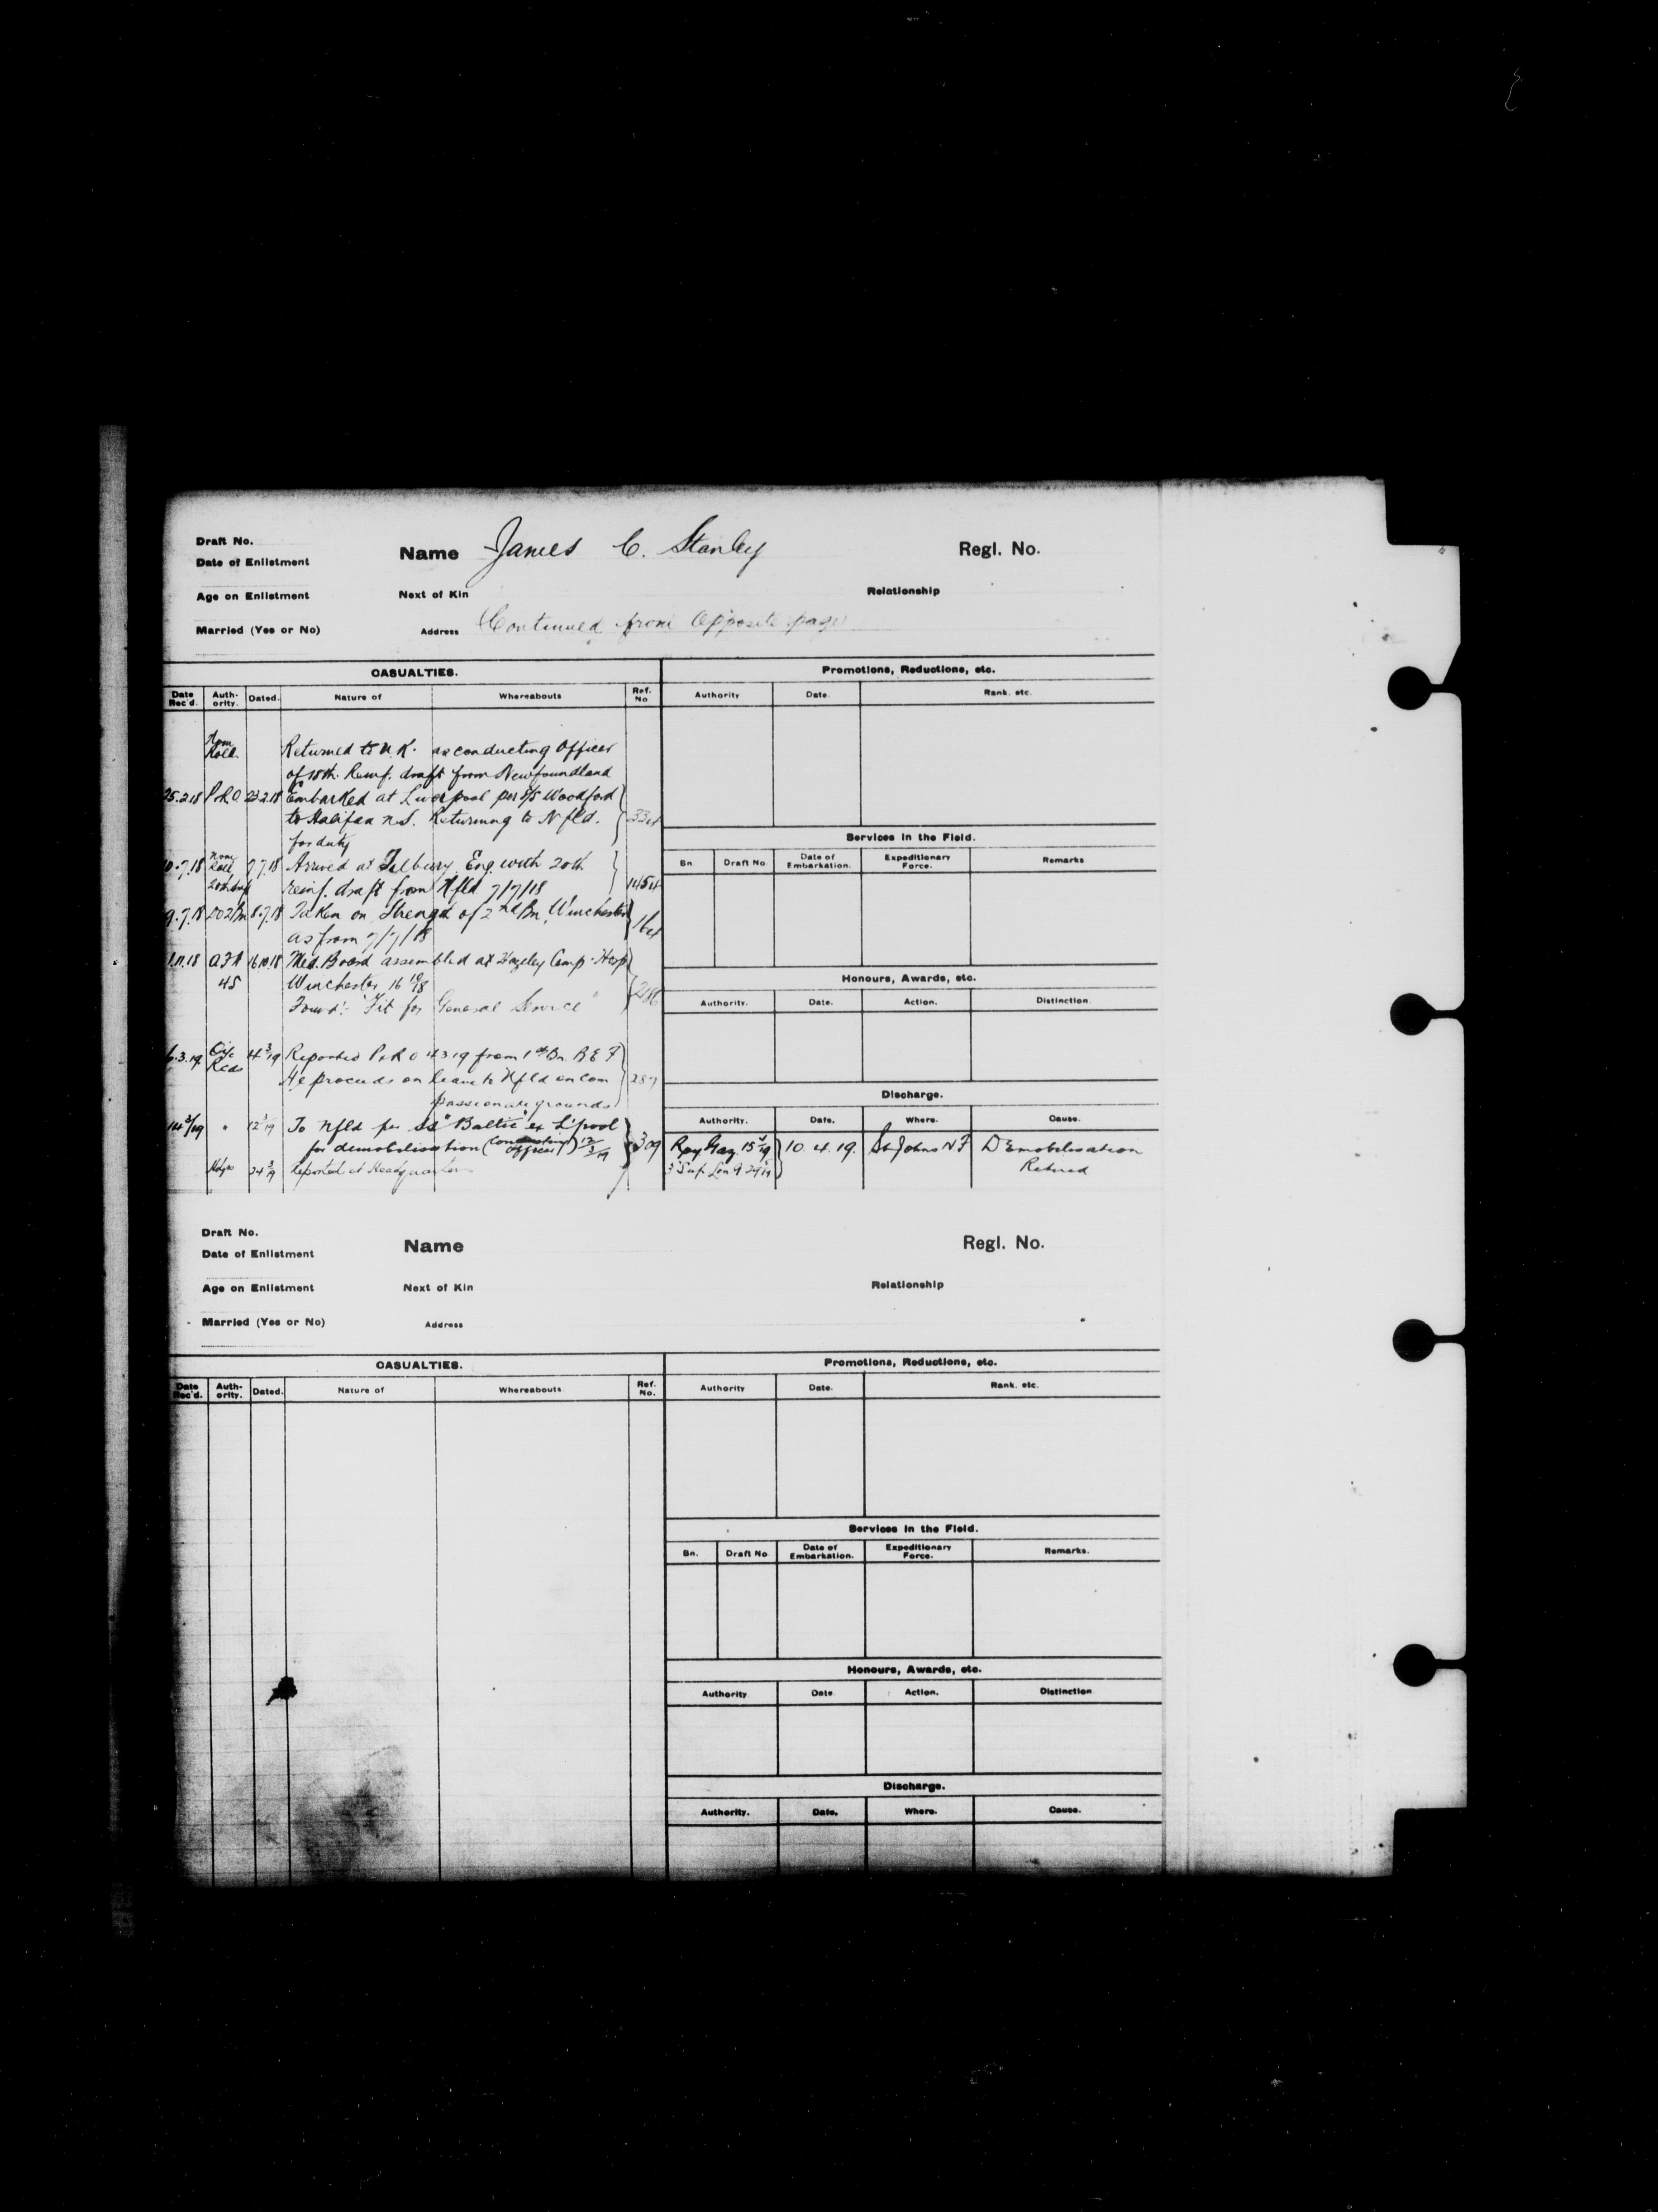 Draft No.
Date of Enlistment
Name James C. Stanley Regl. No.
Age on Enlistment Next of Kin Relationship
Married (Yes or No) Address Continued from Opposite page
CASUALTIES.
Date Rec'd. Auth-ority. Dated. Nature of Whereabouts Ref. No
Nom Roll Returned to U.K. as conducting Officer
of 18th Reinf. draft from Newfoundland
25.2.18 P&RO 23.2.18 Embarked at Liverpool per S/S Woodford
to Halifax N.S. Returning to Nfld.
for duty
10.7.18 Nom Roll 7.7.18 Arrived at Tilbury Eng with 20th
reinf. draft from Nfld 7/7/18
9.7.18 DO2/Bn 8.7.18 Taken on Strength of 2nd Bn, Winchester
as from 7/7/18
1.11.18 AFA 45 16.10.18 Med. Board assembled at Hazeley Camp Hosp
Winchester 16 10/18
Found: "Fit for General Service"
6.3.19 Recds 4 3/19 Reported P&RO 4 3 19 from 1st Bn. B E F
He proceeds on leave to Nfld on com
passionate grounds 287
14 3/19 " 12 3/19 To Nfld per SS "Baltic" ex L'pool
for demobilisation (Conducting Officer) 12/3/19 309
Hdqrs 24 3/19 Reported at Headquarters
Promotions, Reductions, etc.
Authority Date. Rank. etc.
Services in the Field.
Bn. Draft No Date of Embarkation. Expeditionary Force. Remarks
Honours, Awards, etc.
Authority. Date. Action. Distinction
Discharge.
Authority. Date. Where. Cause.
Roy Gaz. 10.4.19. St Johns N F Demobilisation
Retired
Draft No.
Date of Enlistment
Name Regl. No.
Age on Enlistment Next of Kin Relationship
Married (Yes or No) Address
CASUALTIES.
Date Rec'd. Auth-ority. Dated. Nature of Whereabouts Ref. No.
Promotions, Reductions, etc.
Authority Date. Rank. etc.
Services in the Field.
Bn. Draft No Date of Embarkation. Expeditionary Force. Remarks.
Honours, Awards, etc.
Authority Date Action. Distinction
Discharge.
Authority. Date. Where. Cause.